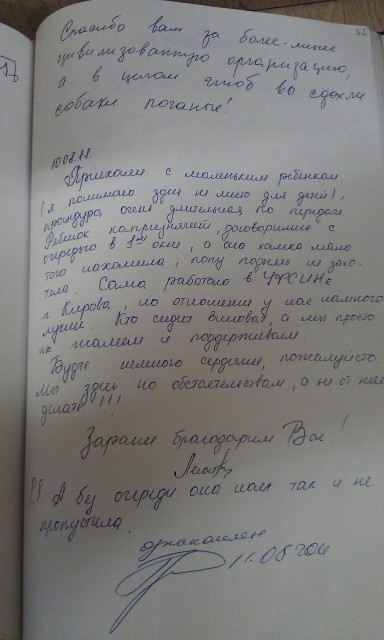 Спасибо вам за более-менее
цивилизованную организацию,
а в целом чтоб вы сдохли
собаки поганые!
10.08.11.
Приехали с маленьким ребенком
(я понимаю здесь не место для детей),
процедура очень длительная по передаче
Ребенок капризничает, договорились с
очередью в 1ом окне, а она хамка мало
того нахамила, попу поднять не захо-
тела. Сама работаю в УФСИНе
г. Кирова, но отношение у нас намного
лучше. Кто сидит виноват, а мы просто
их знаем и поддерживаем.
Будьте немного сердечнее, пожалуйста.
Мы здесь по обстоятельствам, а не от нечего
делать!!!
Заранее благодарим Вас!
P.S. А без очереди она нам так и не
пропустила.
ознакомлен
11.08.2011
17